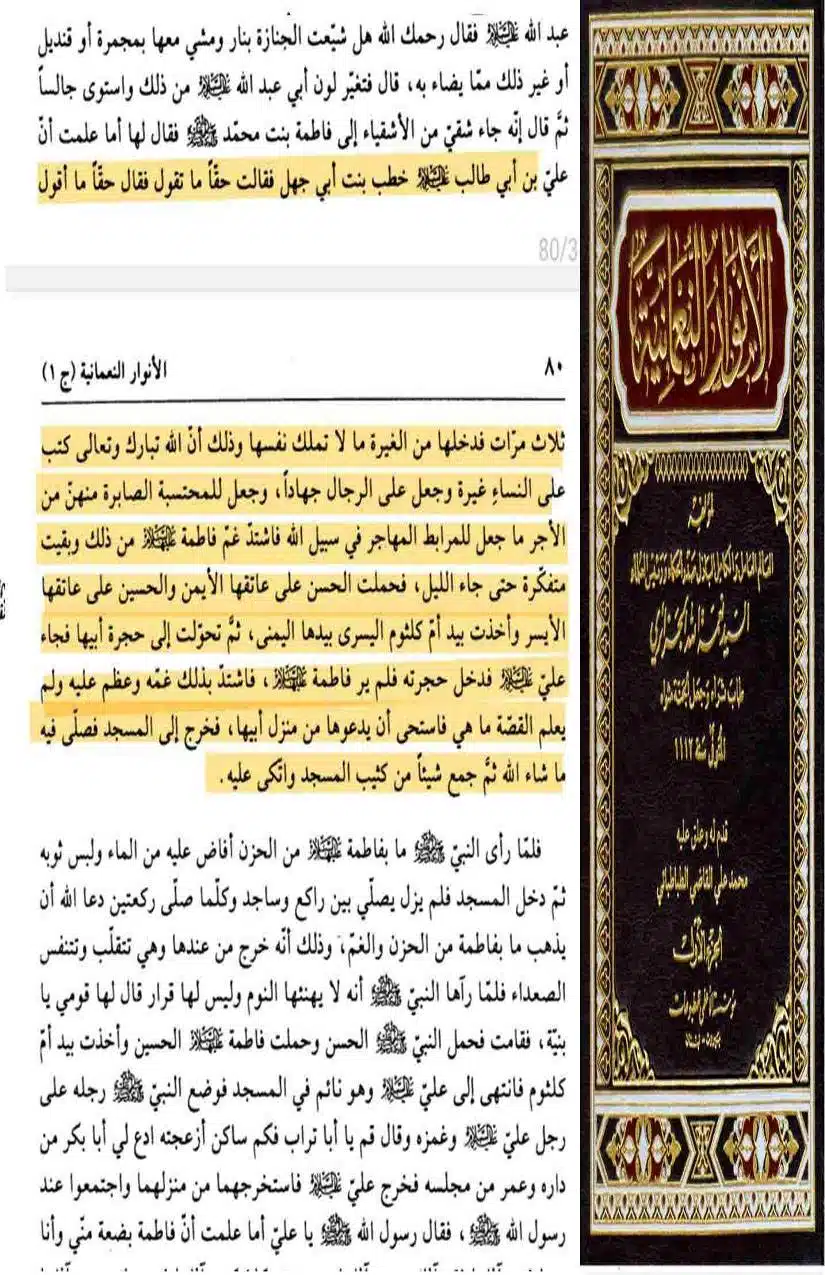 عبد الله عليه السلام فقال رحمك الله هل شيّعت الجنازة بنار ومشي معها بمجمرة أو قنديل
أو غير ذلك ممّا يضاء به، قال فتغيّر لون أبي عبد الله عليه السلام من ذلك واستوى جالساً
ثمَّ قال إنّه جاء شقيّ من الأشقياء إلى فاطمة بنت محمّد ﷺ فقال لها أما علمت أنّ
عليّ بن أبي طالب عليه السلام خطب بنت أبي جهل فقالت حقّاً ما تقول فقال حقّاً ما أقول
80/3
٨٠
الأنوار النعمانية (ج ١)
ثلاث مرّات فدخلها من الغيرة ما لا تملك نفسها وذلك أنّ الله تبارك وتعالى كتب
على النساءِ غيرة وجعل على الرجال جهاداً، وجعل للمحتسبة الصابرة منهنّ من
الأجر ما جعل للمرابط المهاجر في سبيل الله فاشتدّ غمّ فاطمة عليها السلام من ذلك وبقيت
متفكّرة حتى جاء الليل، فحملت الحسن على عاتقها الأيمن والحسين على عاتقها
الأيسر وأخذت بيد أمّ كلثوم اليسرى بيدها اليمنى، ثمَّ تحوّلت إلى حجرة أبيها فجاء
عليّ عليه السلام فدخل حجرته فلم ير فاطمة عليها السلام، فاشتدّ بذلك غمّه وعظم عليه ولم
يعلم القصّة ما هي فاستحى أن يدعوها من منزل أبيها، فخرج إلى المسجد فصلّى فيه
ما شاء الله ثمَّ جمع شيئاً من كثيب المسجد واتّكى عليه.
فلمّا رأى النبيّ ﷺ ما بفاطمة عليها السلام من الحزن أفاض عليه من الماء ولبس ثوبه
ثمّ دخل المسجد فلم يزل يصلّي بين راكع وساجد وكلّما صلّى ركعتين دعا الله أن
يذهب ما بفاطمة من الحزن والغمّ، وذلك أنّه خرج من عندها وهي تتقلّب وتتنفس
الصعداء فلمّا رآها النبيّ ﷺ أنه لا يهنئها النوم وليس لها قرار قال لها قومي يا
بنيّة، فقامت فحمل النبيّ ﷺ الحسن وحملت فاطمة عليها السلام الحسين وأخذت بيد أمّ
كلثوم فانتهى إلى عليّ عليه السلام وهو نائم في المسجد فوضع النبيّ ﷺ رجله على
رجل عليّ عليه السلام وغمزه وقال قم يا أبا تراب فكم ساكن أزعجته ادع لي أبا بكر من
داره وعمر من مجلسه فخرج عليّ عليه السلام فاستخرجهما من منزلهما واجتمعوا عند
رسول الله ﷺ، فقال رسول الله ﷺ يا عليّ أما علمت أنّ فاطمة بضعة منّي وأنا
الأنوار النعمانية
السيد نعمة الله الجزائري
طاب ثراه وجعل الجنة مثواه
المتوفى سنة ١١١٢
قدم له وعلق عليه
محمد علي القاضي الطباطبائي
الجزء الأول